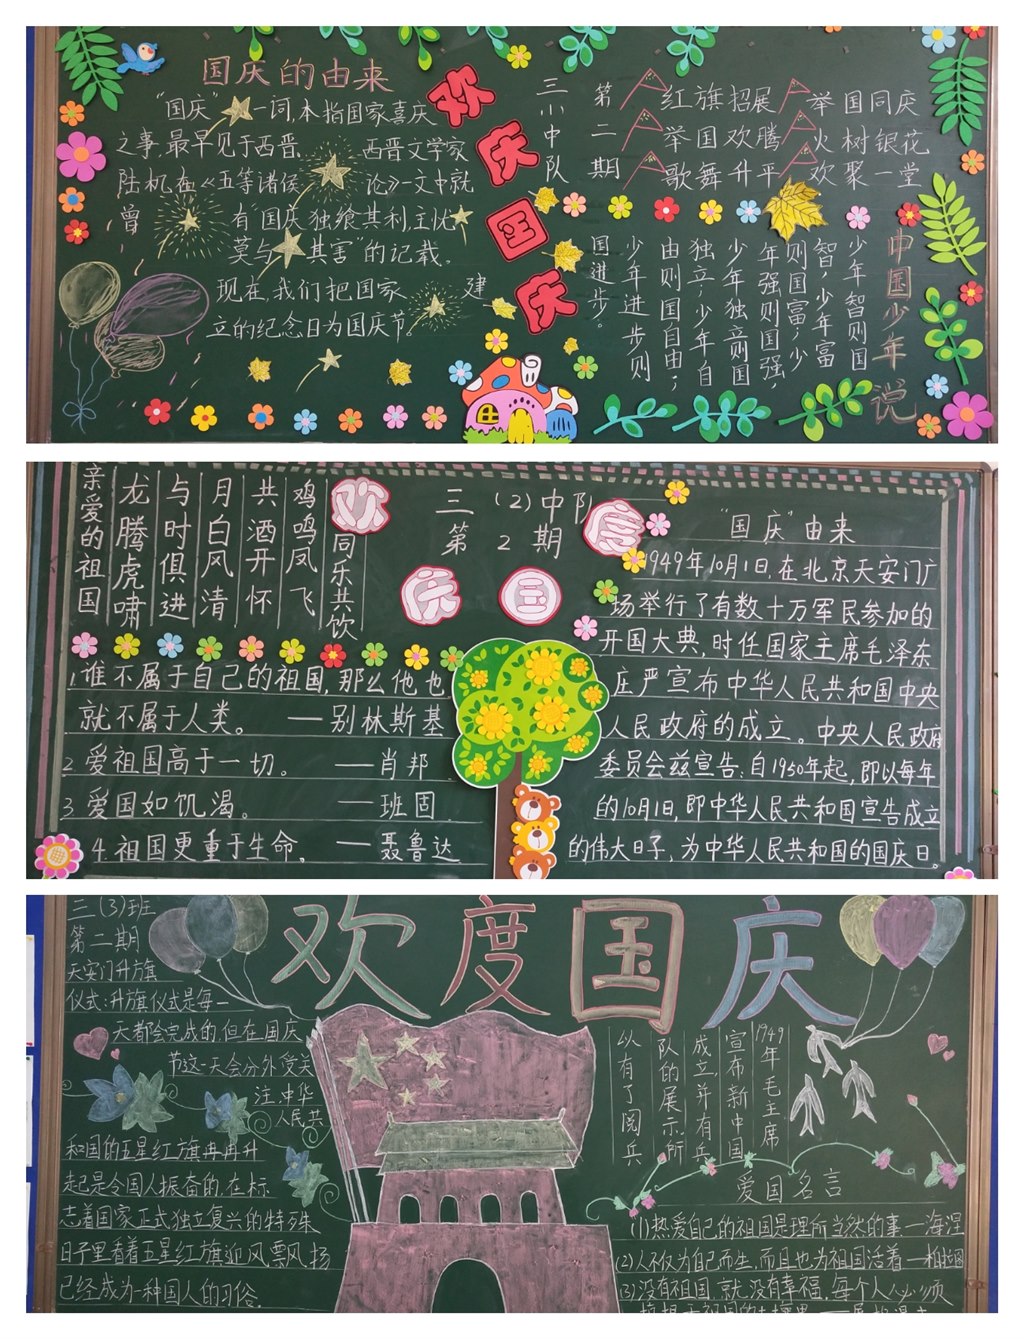 国庆的由来
“国庆”一词,本指国家喜庆
之事,最早见于西晋,西晋文学家
陆机在《五等诸侯论》一文中就
曾有“国庆独飨其利,主忧
莫与其害”的记载。
现在,我们把国家建
立的纪念日为国庆节。
欢庆国庆
三小中队
第二期
红旗招展 举国同庆
举国欢腾 火树银花
歌舞升平 欢聚一堂
中国少年说
少年智则国
智,少年富
则国富,少
年强则国强,
少年独立则国
独立,少年自
由则国自由;
少年进步则
国进步。
亲爱的祖国
龙腾虎啸
与时俱进
月白风清
共酒开怀
鸡鸣凤飞
同乐共饮
欢度国庆
三(2)中队
第2期
1.谁不属于自己的祖国,那么他也
就不属于人类。——别林斯基
2.爱祖国高于一切。——肖邦
3.爱国如饥渴。——班固
4.祖国更重于生命。——聂鲁达
“国庆”由来
1949年10月1日,在北京天安门广
场举行了有数十万军民参加的
开国大典,时任国家主席毛泽东
庄严宣布中华人民共和国中央
人民政府的成立。中央人民政府
委员会兹宣告:自1950年起,即以每年
的10月1日,即中华人民共和国宣告成立
的伟大日子,为中华人民共和国的国庆日。
三(3)班
第二期
欢度国庆
天安门升旗
仪式:升旗仪式是每一
天都会完成的,但在国庆
节这一天会分外受关
注,中华
人民共
和国的五星红旗冉冉升
起是令国人振奋的,在标
志着国家正式独立复兴的特殊
日子里看着五星红旗迎风飘扬
已经成为一种国人的习俗。
1949年毛主席
宣布新中国
成立,并有兵
队的展示,所
以有了阅兵
爱国名言
(1)热爱自己的祖国是理所当然的事—海涅
(2)人不仅为自己而生,而且也为祖国活着—柏拉图
(3)没有祖国,就没有幸福,每个人必须